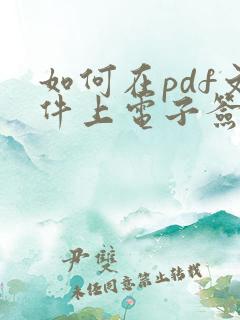 如何在pdf文
件上電子簽
尹雙
未经同意禁止转载